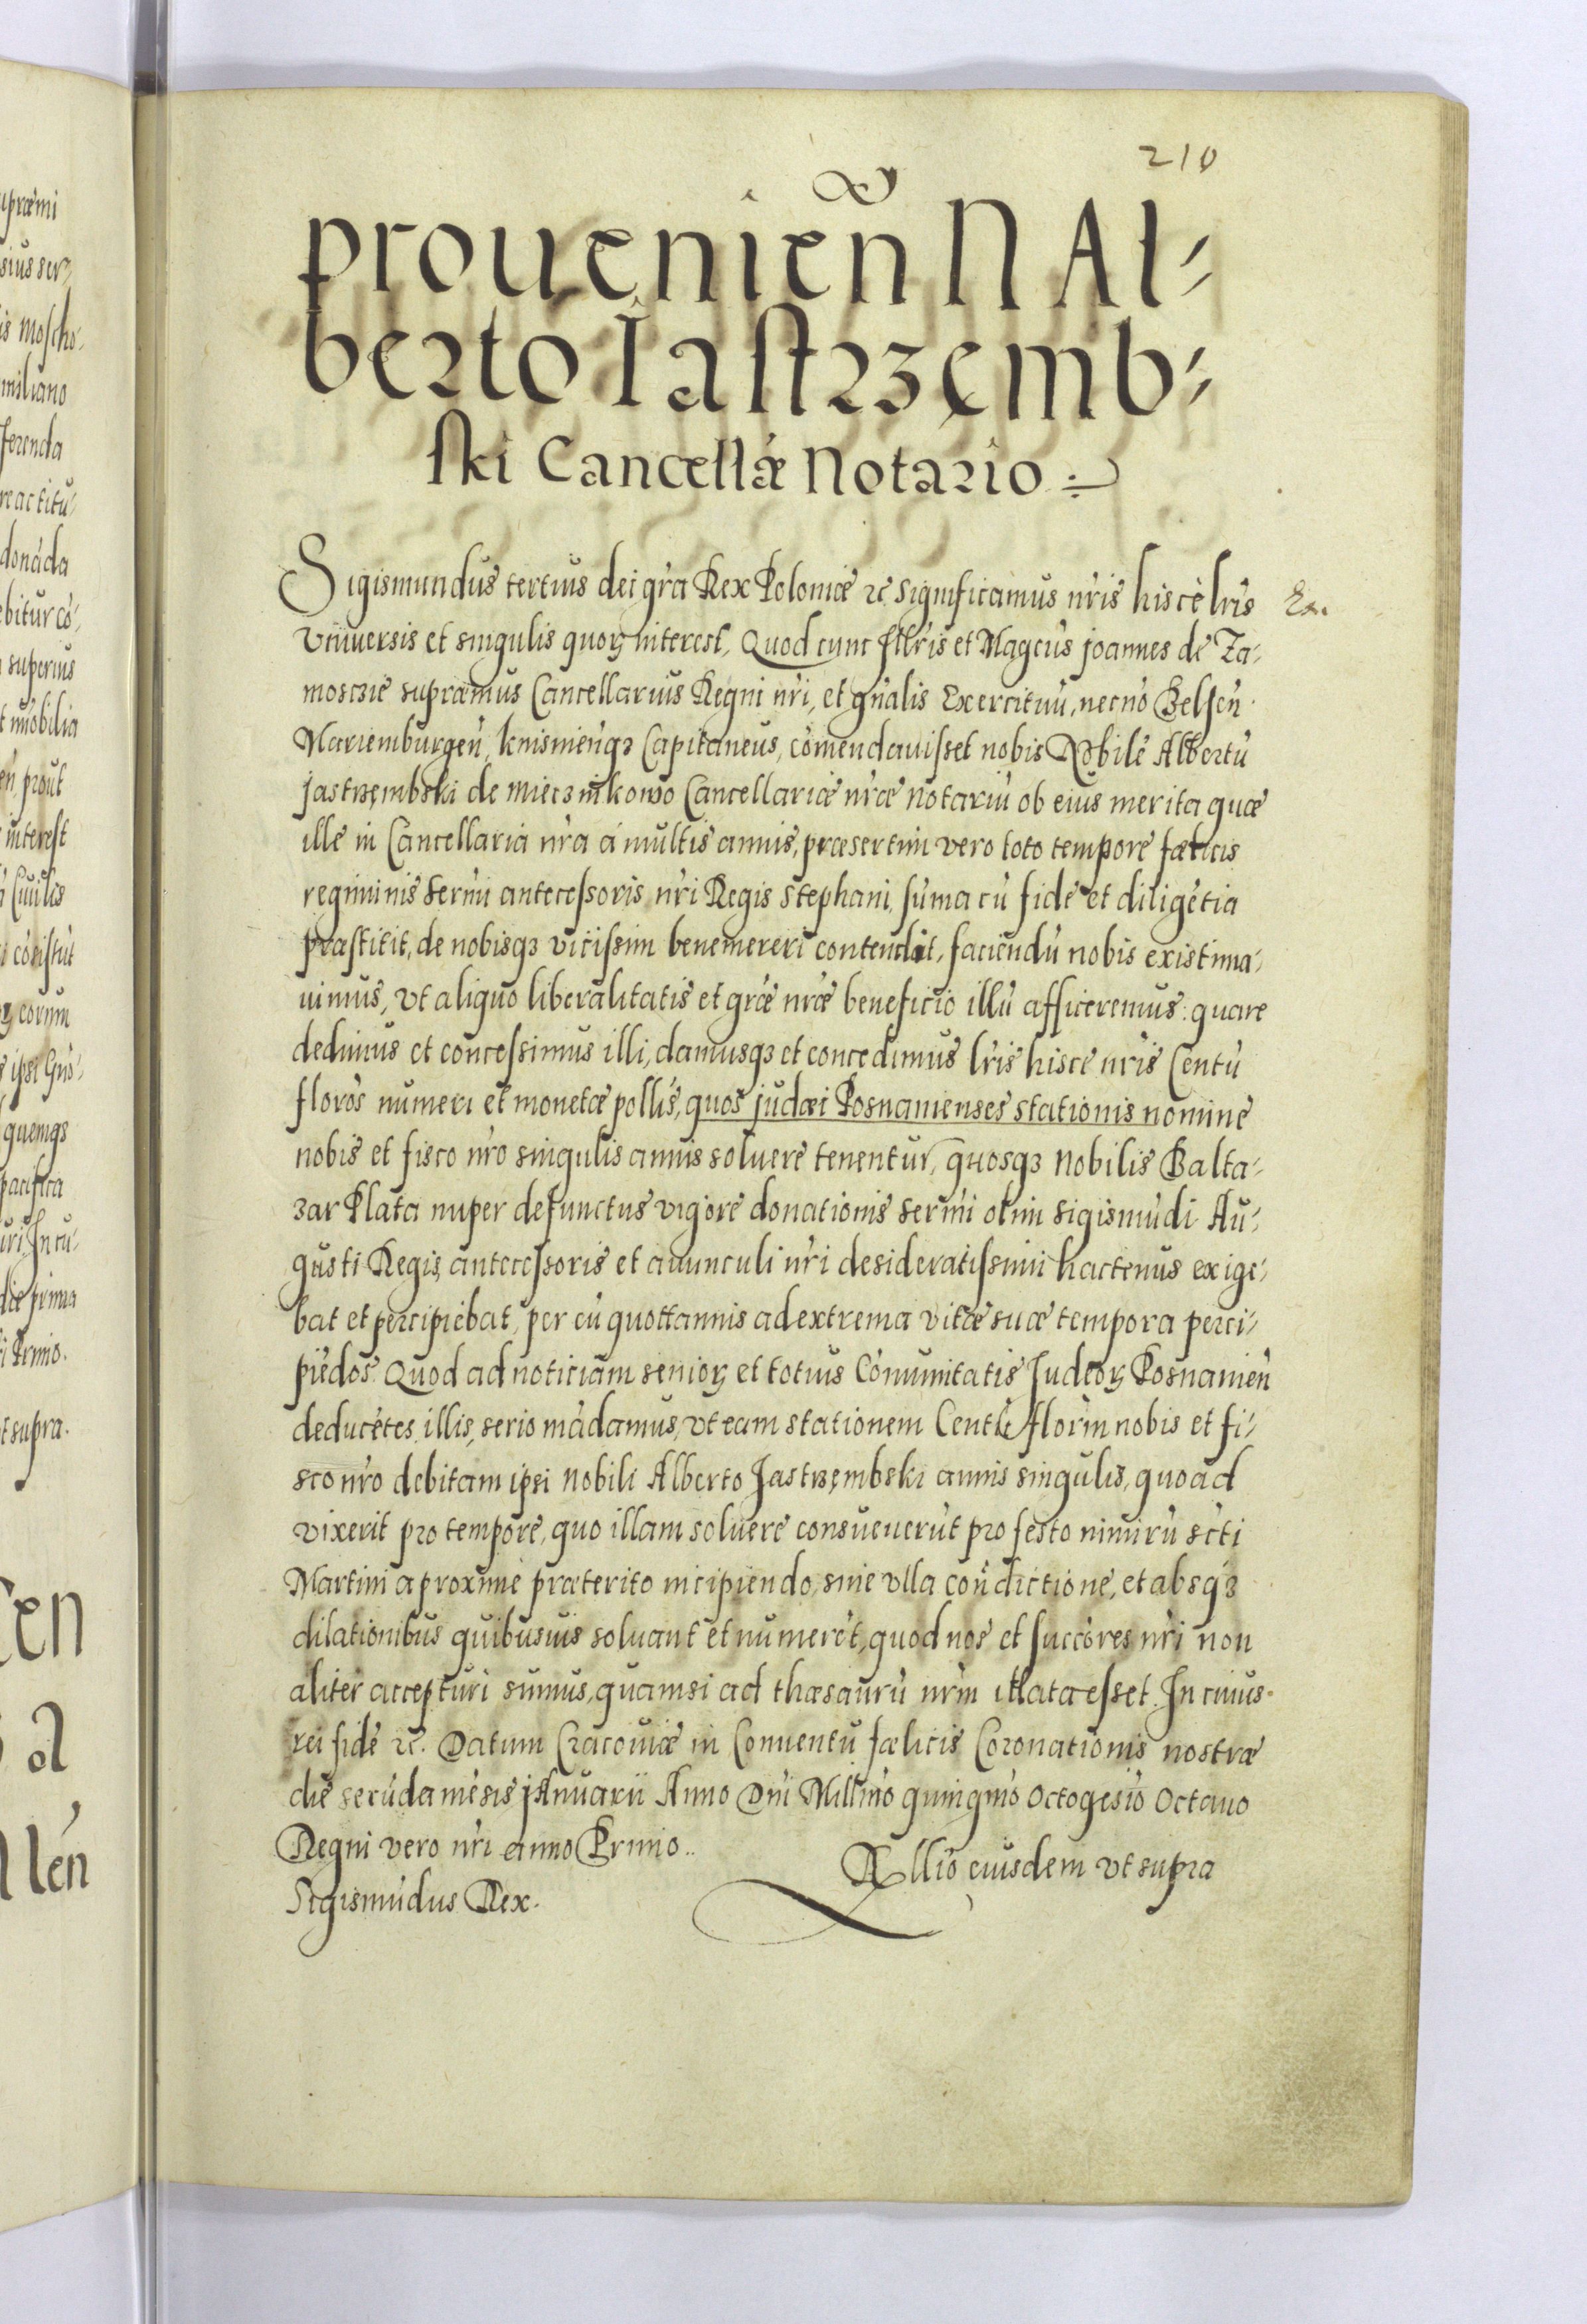 210
prouenieñ N Al-
berto Iastrzęmb-
ski Cancellæ Notario
Sigismundus tertius dei gr̃a Rex Poloniæ ꝛc significamus nr̃is hisce lr̃is Ex.
Vniuersis et singulis quorꝫ interest, Quod cunc Illr̃is et Magcus Joannes de Za-
mosczie supræmus Cancellarius Regni nr̃i, et gñalis Exercituũ, necnõ Belseñ
Mariemburgeñ, knisnieñqꝫ Capitaneus, cõmendauisset nobis Nobilẽ Albertũ
Jastrzęmbski de Miecznikowo Cancellariæ nr̃æ Notariũ ob eius merita quæ
ille in Cancellaria nr̃a á multis annis, præsertim vero toto tempore fælicis
regiminis Serm̃i antecessoris nr̃i Regis Stephani, sũma cũ fide et diligẽtia
præstitit, de nobisqꝫ vicissim benemereri contendit, faciendũ nobis existima-
uimus, vt aliquo liberalitatis et gr̃æ nr̃æ beneficio illũ afficeremus: quare
dedimus et concessimus illi, damusqꝫ et concedimus lr̃is hisce nr̃is Centũ
florõs numeri et monetæ pollis, quos judæi Posnanienses stationis nomine
nobis et fisco nr̃o singulis annis soluere tenentur, quosqꝫ Nobilis Balta-
zar Plata nuper defunctus vigore donationis Serm̃i olim Sigismũdi Au-
gusti Regis, antecessoris et auunculi nr̃i desideratissimi hactenus exige-
bat et percipiebat, per eũ quottannis ad extrema vitæ suæ tempora perci-
piẽdos. Quod ad noticiam seniorꝫ et totius Cõmunitatis Judeorꝫ Posnanieñ
deducẽtes, illis, serio mãdamus, vt eam stationem Centũ florĩn nobis et fi-
sco nr̃o debitam ipsi Nobili Alberto Jastrzęmbski annis singulis, quoad
vixerit pro tempore, quo illam soluere consueuerũt pro festo nimirũ scti
Martini a proxime præterito incipiendo, sine vlla cõndictione, et absqꝫ
dilationibus quibusuis soluant et numerẽt, quod nos et succõres nr̃i non
aliter accepturi sumus, quamsi ad thæsaurũ nr̃m illata esset. In cuius
rei fidẽ ꝛc. Datum Cracouiæ in Conuentu fælicis Coronationis nostræ
die secũda mẽsis Januarii Anno Dñi Millm̃o quingm̃o Octogesĩo Octauo
Regni vero nr̃i anno Primo..
Rllio eiusdem vt supra
Sigismũdus Rex.